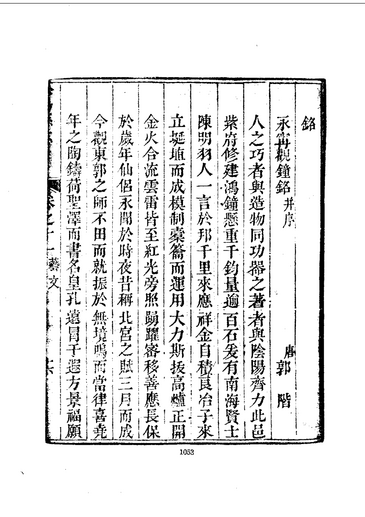 銘
永寗觀鐘銘并序
唐 郭階
人之巧者與造物同功器之著者與陰陽齊力此邑
紫府修建鴻鐘懸重千鈞量逾百石爰有南海賢士
陳明羽人一言於邦千里來應祥金自積良冶子來
立埏埴而成模制橐籥而運用大力斯拔高爐正開
金火合流雲雷皆至紅光旁照踢躍審移善應長保
於歲年仙侶永聞於時夜昔稱北宮之賦三月而成
今觀東郭之師不田而就振於無境鳴而當律喜堯
年之陶鑄荷聖澤而書名皇孔遠冐于遐方景福願
卷之十一 藝文
1053